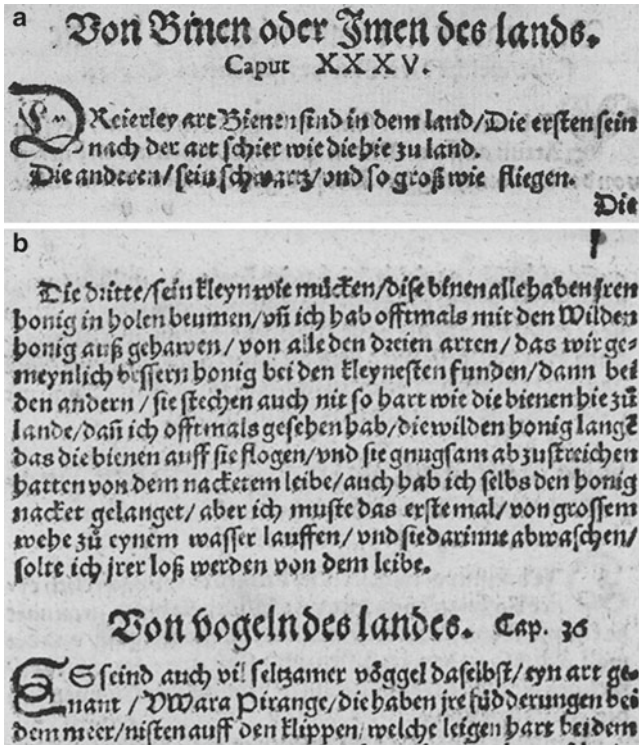 a
Von Binen oder Jmen des lands.
Caput XXXV.
DReierley art Bienen sind in dem land/Die ersten sein
nach der art schier wie die hie zu land.
Die anderen/sein schwartz/vnd so groß wie fliegen.
Die
b
Die dritte/sein kleyn wie mücken/dise binen alle haben jren
honig in holen beumen/vñ ich hab offtmals mit den Wilden
honig auß gehawen/von alle den dreien arten/das wir ge-
meynlich bessern honig bei den kleynesten funden/dann bei
den andern/sie stechen auch nit so hart wie die bienen hie zů
lande/dañ ich offtmals gesehen hab/die wilden honig langē
das die bienen auff sie flogen/vnd sie gnugsam abzustreichen
hatten von dem nacketem leibe/auch hab ich selbs den honig
nacket gelanget/aber ich muste das erste mal/von grossem
wehe zů eynem wasser lauffen/vnd sie darinne abwaschen/
solte ich jrer loß werden von dem leibe.
Von vogeln des landes. Cap. 36
ES seind auch vil seltzamer vöggel daselbst/eyn art ge-
nant/VWara Pirange/die haben jre fůdderungen bei
dem meer/nisten auff den klippen/welche leigen hart bei dem